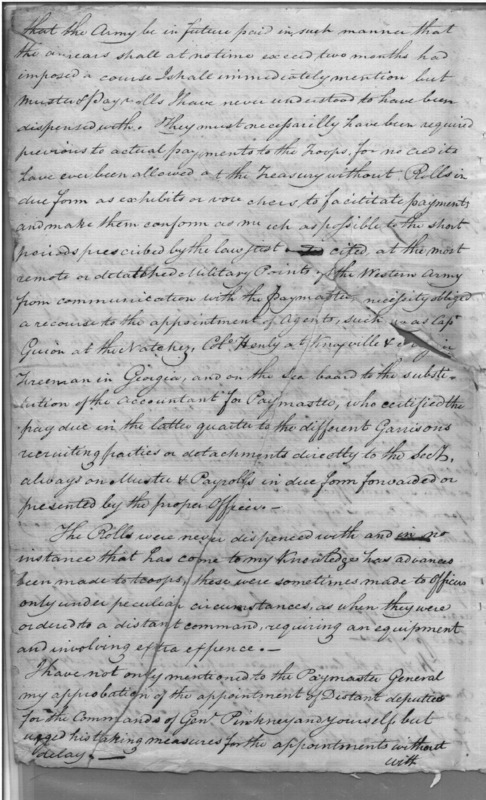 that the Army be in future paid in such manner that
the arrears shall at no time exceed two months had
imposed a course I shall immediately mention but
muster & pay rolls I have never understood to have been
dispensed with. They must necessarilly have been required
previous to actual payments to the Troops, for no credits
have ever been allowed at the Treasury without Rolls in
due form as exhibits or vouchers to facilitate payments
and make them conform as much as possible to the short
periods prescribed by the law first cited, at the most
remote or detatched Military Points of the Western Army
from communication with the Paymaster, necessity obliged
a recourse to the appointment of Agents, such as Capt
Guion at the Natchez, Col. Henly at Knoxville &
Freeman in Georgia, and on the Sea board to the substi-
tution of the accountant for Paymaster, who certified the
pay due in the latter quarter to the different Garrisons
recruiting parties or detachments directly to the Secy,
always on Muster & Payrolls in due form forwarded or
presented by the proper Officer. —
The Rolls were never dispenced with and in no
instance that has come to my Knowledge has advances
been made to troops, these were sometimes made to Officers
only under peculiar circumstances, as when they were
ordered to a distant command, requiring an equipment
and involving extra expence. —
I have not only mentioned to the Paymaster General
my approbation of the appointment of Distant deputies
for the Commands of Genl Pinkney and yourself but
urged his taking measures for the appointments without
delay. —
with